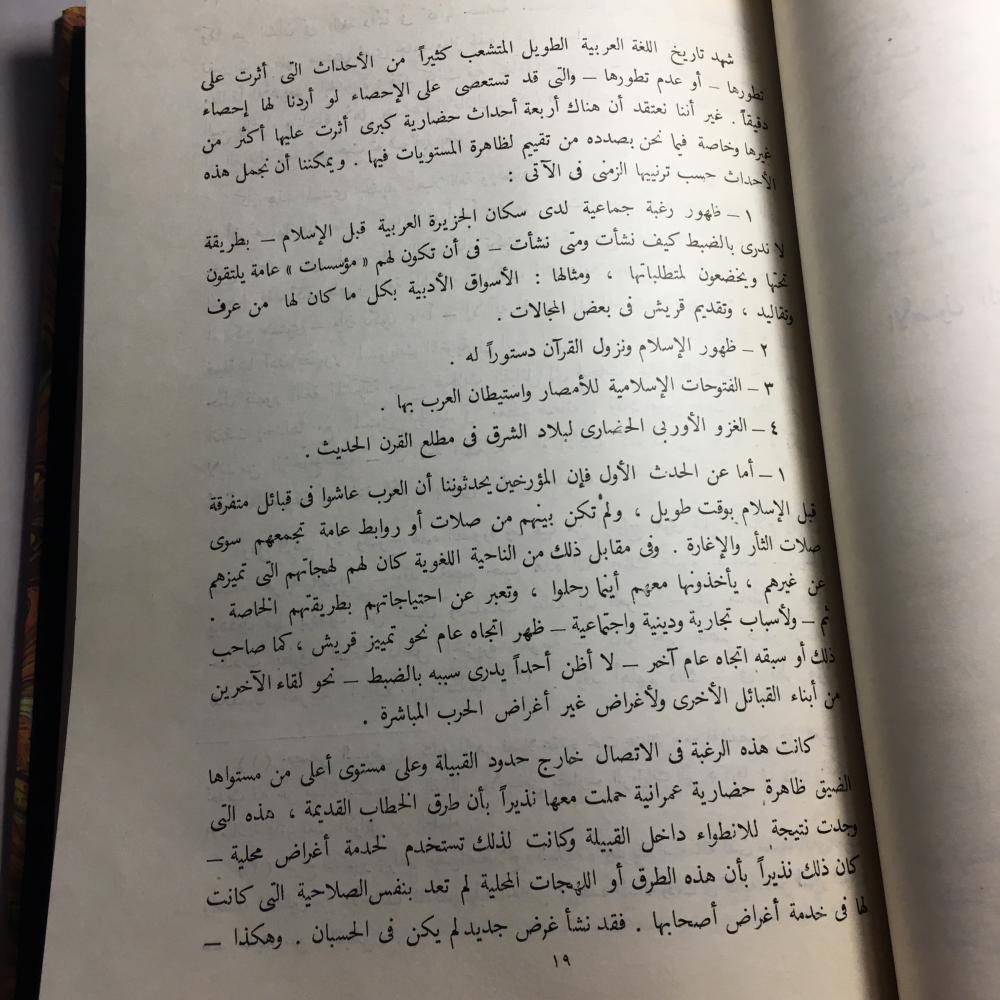 شهد تاريخ اللغة العربية الطويل المتشعب كثيراً من الأحداث التى أثرت على
تطورها – أو عدم تطورها – والتى قد تستعصى على الإحصاء لو أردنا لها إحصاء
دقيقاً . غير أننا نعتقد أن هناك أربعة أحداث حضارية كبرى أثرت عليها أكثر من
غيرها وخاصة فيما نحن بصدده من تقييم لظاهرة المستويات فيها . ويمكننا أن نجمل هذه
الأحداث حسب ترتيبها الزمنى فى الآتى :
١ – ظهور رغبة جماعية لدى سكان الجزيرة العربية قبل الإسلام – بطريقة
لا ندرى بالضبط كيف نشأت ومتى نشأت – فى أن تكون لهم « مؤسسات » عامة يلتقون
تحتها ويخضعون لمتطلباتها ، ومثالها : الأسواق الأدبية بكل ما كان لها من عرف
وتقاليد ، وتقديم قريش فى بعض المجالات .
٢ – ظهور الإسلام ونزول القرآن دستوراً له .
٣ – الفتوحات الإسلامية للأمصار واستيطان العرب بها .
٤ – الغزو الأوربى الحضارى لبلاد الشرق فى مطلع القرن الحديث .
١ – أما عن الحدث الأول فإن المؤرخين يحدثوننا أن العرب عاشوا فى قبائل متفرقة
قبل الإسلام بوقت طويل ، ولم تكن بينهم من صلات أو روابط عامة تجمعهم سوى
صلات الثأر والإغارة . وفى مقابل ذلك من الناحية اللغوية كان لهم لهجاتهم التى تميزهم
عن غيرهم ، يأخذونها معهم أينما رحلوا ، وتعبر عن احتياجاتهم بطريقتهم الخاصة .
ثم – ولأسباب تجارية ودينية واجتماعية – ظهر اتجاه عام نحو تمييز قريش ، كما صاحب
ذلك أو سبقه اتجاه عام آخر – لا أظن أحداً يدرى سببه بالضبط – نحو لقاء الآخرين
من أبناء القبائل الأخرى ولأغراض غير أغراض الحرب المباشرة .
كانت هذه الرغبة فى الاتصال خارج حدود القبيلة وعلى مستوى أعلى من مستواها
الضيق ظاهرة حضارية عمرانية حملت معها نذيراً بأن طرق الخطاب القديمة ، هذه التى
وجدت نتيجة للانطواء داخل القبيلة وكانت لذلك تستخدم لخدمة أغراض محلية –
كان ذلك نذيراً بأن هذه الطرق أو اللهجات المحلية لم تعد بنفس الصلاحية التى كانت
لها فى خدمة أغراض أصحابها . فقد نشأ غرض جديد لم يكن فى الحسبان . وهكذا –
١٩